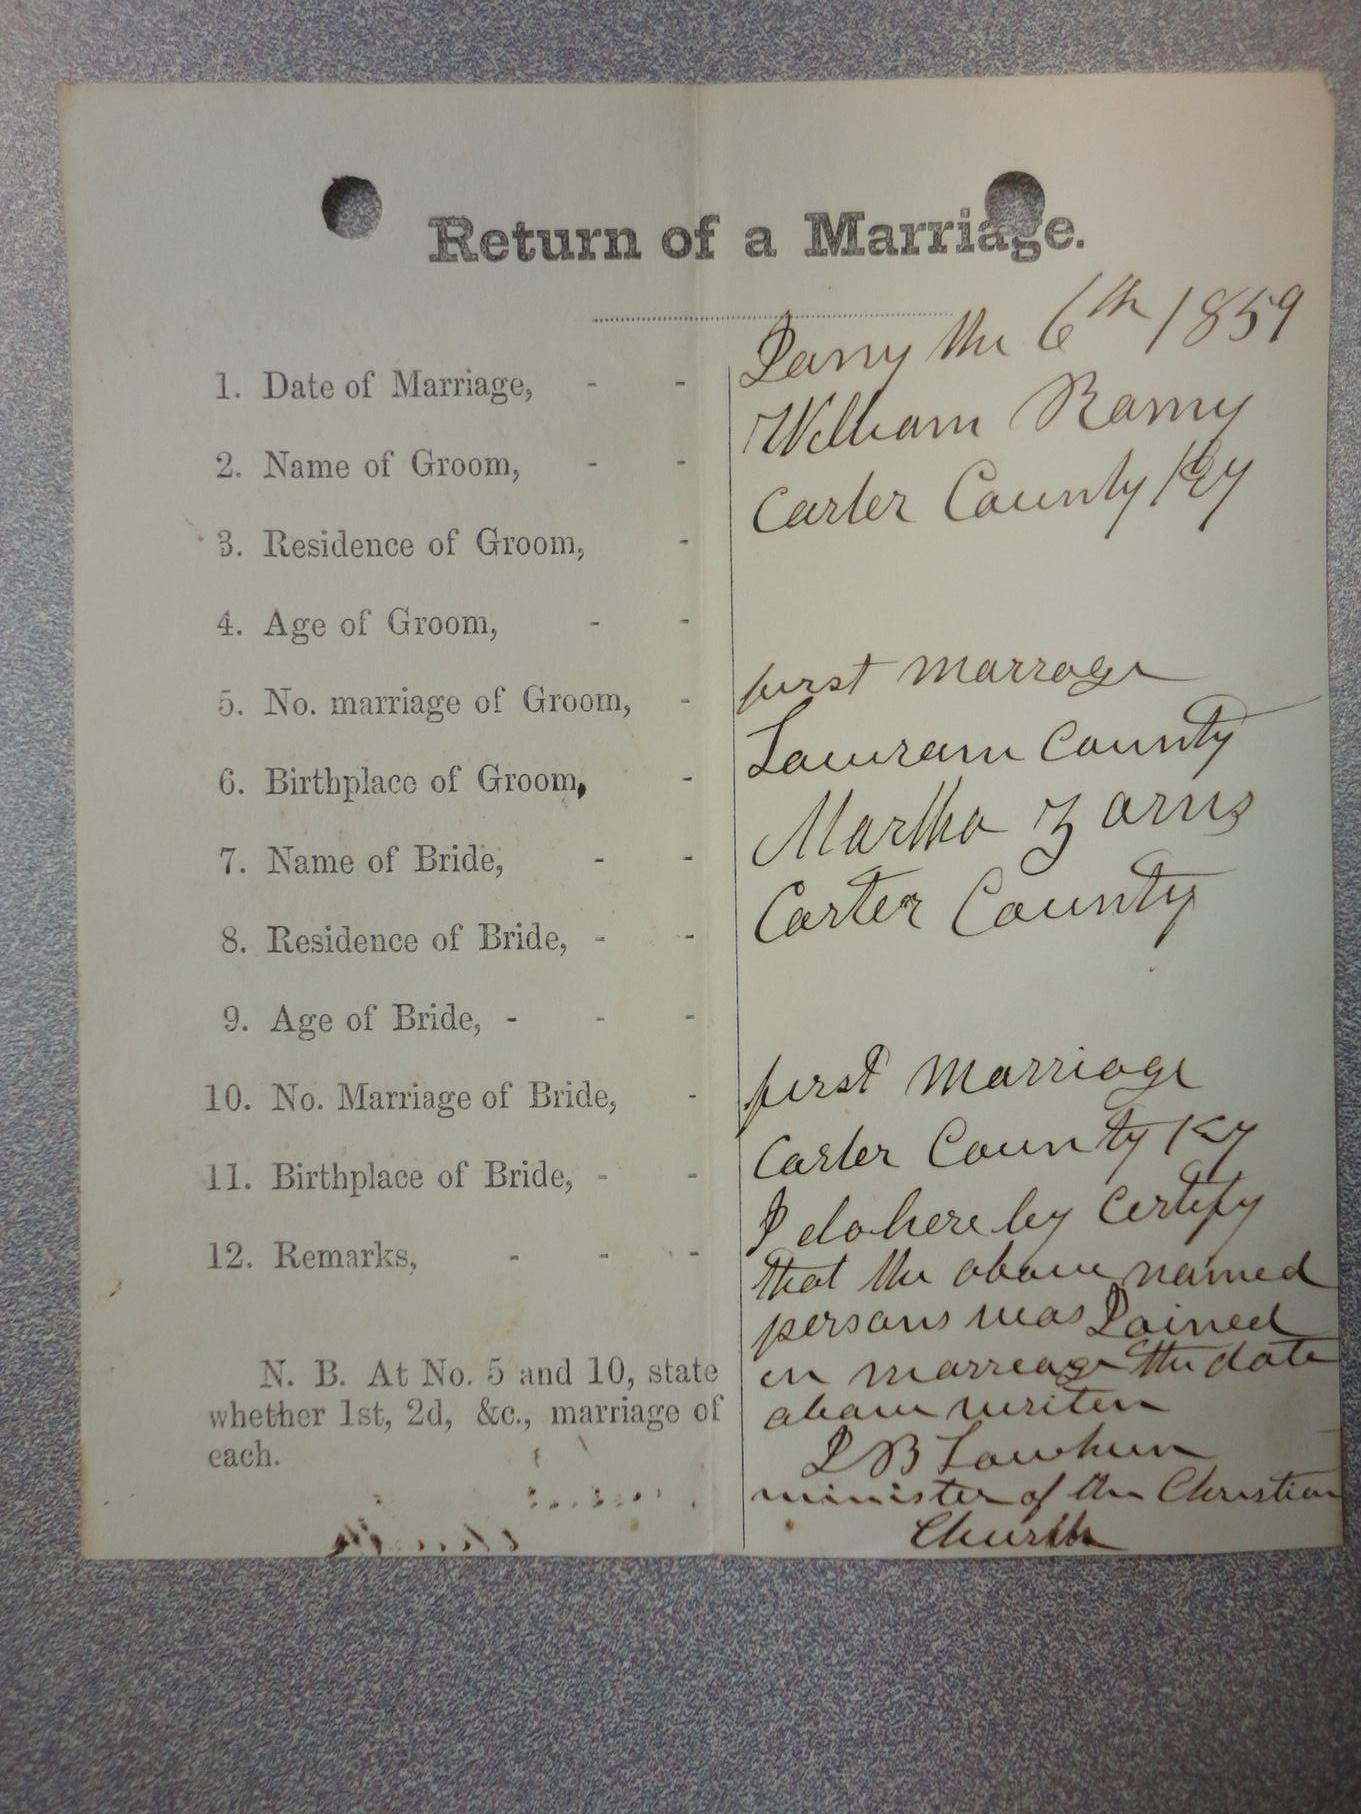 Return of a Marriage.
1. Date of Marriage, - - Jany the 6th 1859
2. Name of Groom, - - William Ramy
3. Residence of Groom, - Carter County Ky
4. Age of Groom, - -
5. No. marriage of Groom, - first marrage
6. Birthplace of Groom, - County
7. Name of Bride, - - Martha
8. Residence of Bride, - - Carter County
9. Age of Bride, - - -
10. No. Marriage of Bride, - first Marriage
11. Birthplace of Bride, - - Carter County Ky
12. Remarks, - - - I do here by certify
that the above named
persons was Joined
in marreage the date
above writen
J B Lawhun
minister of the Christian
Church
N. B. At No. 5 and 10, state
whether 1st, 2d, &c., marriage of
each.